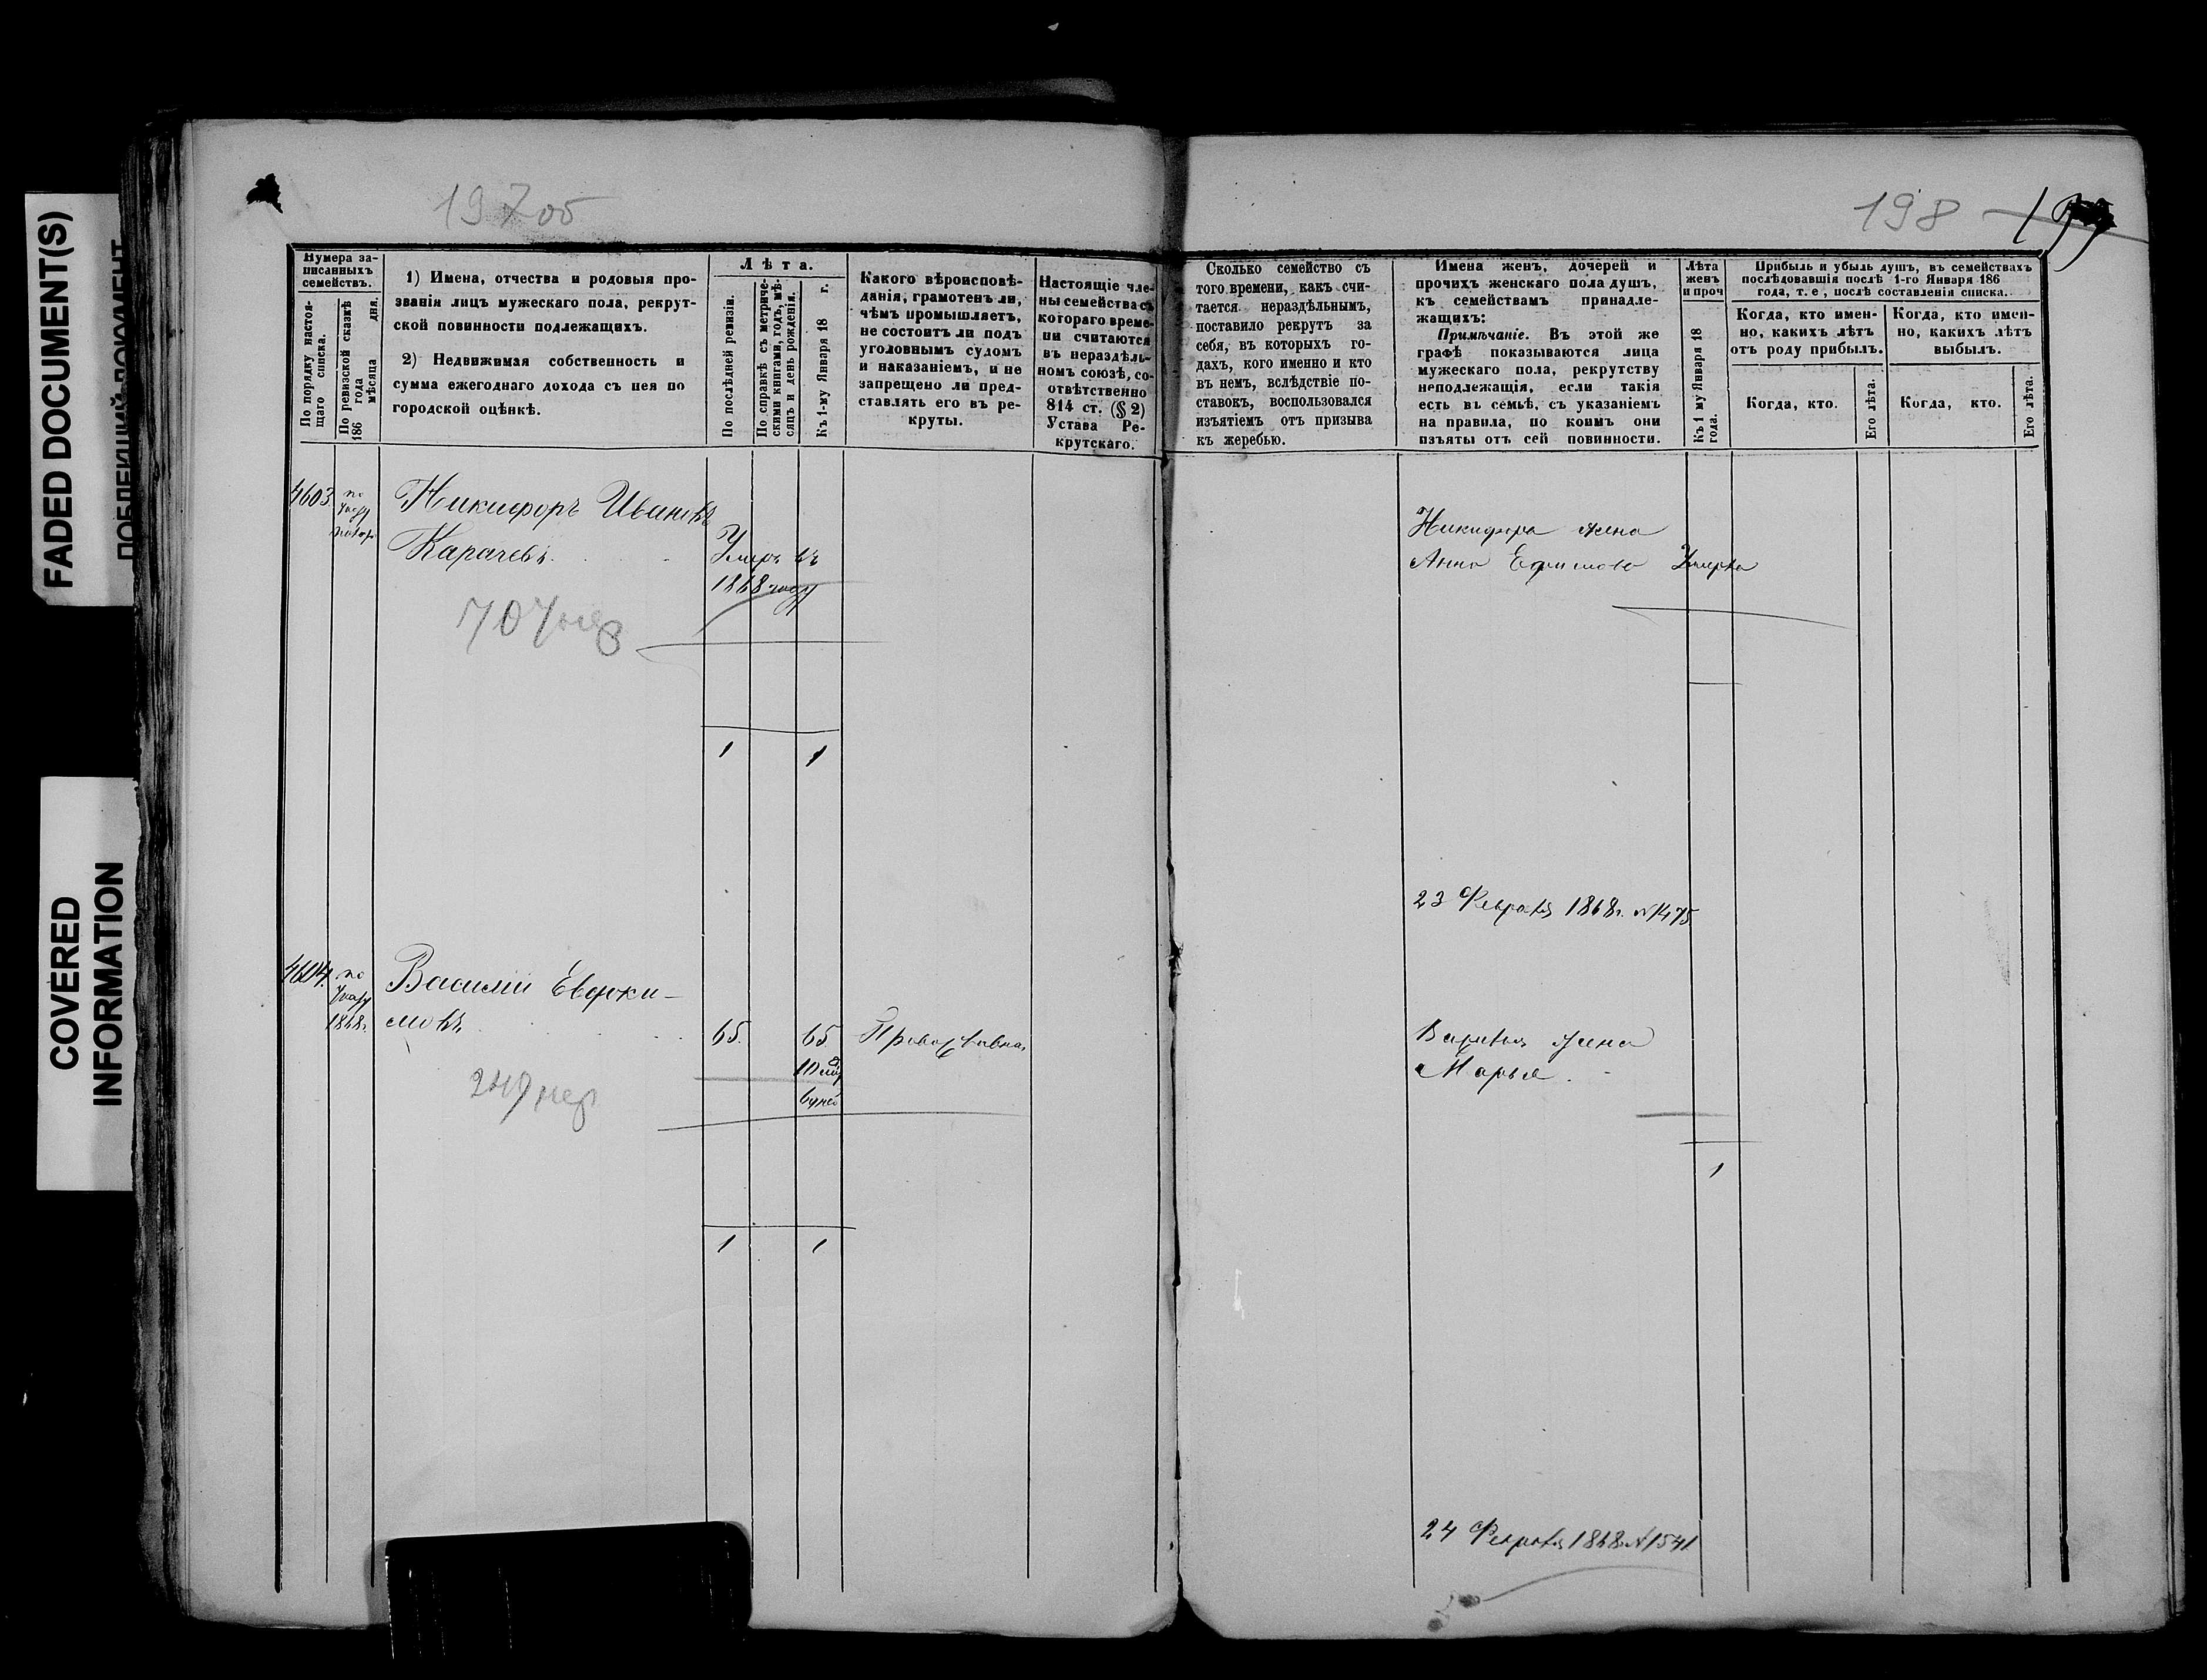 FADED DOCUMENT(S)
COVERED
INFORMATION
197об
198
Нумера за-
писанныхъ
семействъ.
По порядку настоя-
щаго списка.
По ревизской сказкѣ
186 года
мѣсяца дня.
1) Имена, отчества и родовыя про-
званія лицъ мужескаго пола, рекрут-
ской повинности подлежащихъ.
2) Недвижимая собственность и
сумма ежегоднаго дохода съ нея по
городской оцѣнкѣ.
Лѣта.
По послѣдней ревизіи.
По справкѣ съ метриче-
скими книгами, годъ, мѣ-
сяцъ и день рожденія.
Къ 1-му Января 18 г.
Какого вѣроисповѣ-
данія, грамотенъ ли,
чѣмъ промышляетъ,
не состоитъ ли подъ
уголовнымъ судомъ
и наказаніемъ, и не
запрещено ли пред-
ставлять его въ ре-
круты.
Настоящіе чле-
ны семейства съ
котораго време-
ни считаются
въ нераздѣль-
номъ союзѣ, со-
отвѣтственно
814 ст. (§ 2)
Устава Ре-
крутскаго.
Сколько семейство съ
того времени, какъ счи-
тается нераздѣльнымъ,
поставило рекрутъ за
себя, въ которыхъ го-
дахъ, кого именно и кто
въ немъ, вслѣдствіе по-
ставокъ, воспользовался
изъятіемъ отъ призыва
къ жеребью.
Имена женъ, дочерей и
прочихъ женскаго пола душъ,
къ семействамъ принадле-
жащихъ:
Примѣчаніе. Въ этой же
графѣ показываются лица
мужескаго пола, рекрутству
неподлежащія, если такія
есть въ семьѣ, съ указаніемъ
на правила, по коимъ они
изъяты отъ сей повинности.
Лѣта
женъ
и проч
Къ 1 му Января 18
года.
Прибыль и убыль душъ, въ семействахъ
послѣдовавшія послѣ 1-го Января 186
года, т. е., послѣ составленія списка.
Когда, кто имен-
но, какихъ лѣтъ
отъ роду прибылъ.
Когда, кто имен-
но, какихъ лѣтъ
выбылъ.
Когда, кто.
Его лѣта.
Когда, кто.
Его лѣта.
4603
по
Указу
Никифоръ Ивановъ
Карачевъ
Умеръ въ
1868 году
Никифора жена
Анна Ефимова Умерла
707 нер
1 1
23 Февраля 1868 г. №1475
4604.
по
Указу
1868 г.
Василій Евдоки-
мовъ
65. 65
10 мѣ
Православна
Василья жена
Марья
249 нер
1
1 1
24 Февраля 1868 №1541